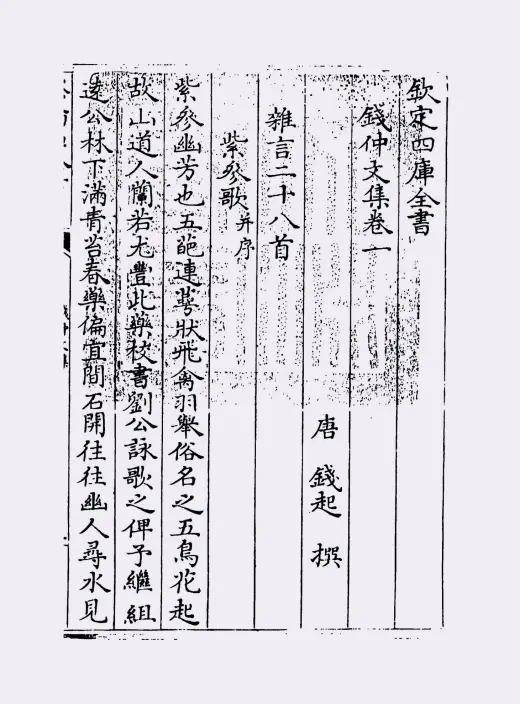 欽定四庫全書
錢仲文集卷一
唐 錢起 撰
雜言二十八首
紫參歌 并序
紫參幽芳也五葩連萼狀飛禽羽舉俗名之五鳥花起
故山道人蘭若尤豐此藥校書劉公詠歌之俾予繼組
遠公林下滿青苔春藥偏宜間石開往往幽人尋水見